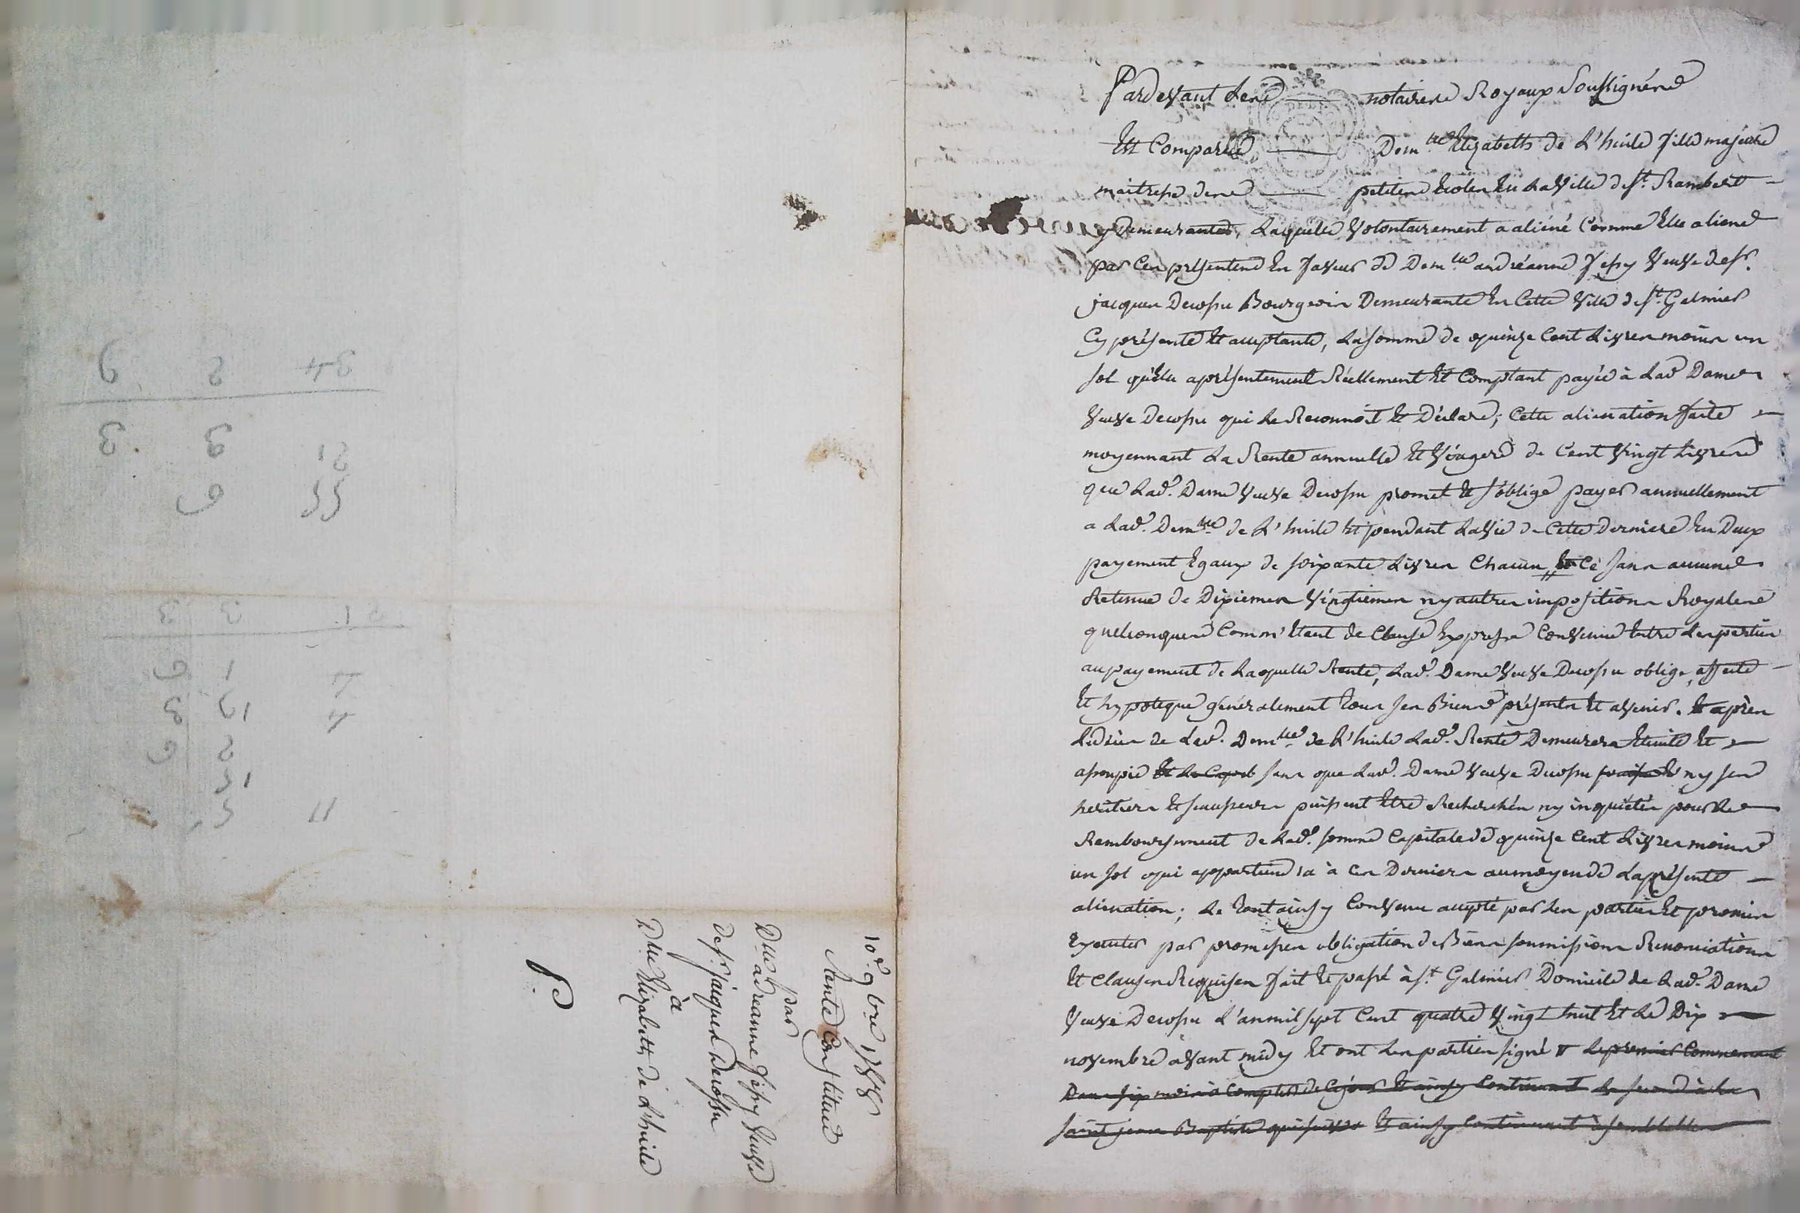 Pardevant Les notaires Royaux Soussignés
Est Comparüe Dem.lle Elizabeth de L'huile fille majeure
maitresse des petites Ecoles En La Ville de St. Rambert
y Demeurantes, Laquelle Volontairement a aliéné Comme Elle aliene
par Ces présentes En faveur de Dem.lle andréanne Jessy Veuve de sr.
jacques Decossu Bourgeois Demeurante En Cette Ville de St. Galmier
Cy présente Et acceptante, La somme de quinze Cent Livres moins un
sol qu'elle a présentement Réellement Et Comptant payée à Lad. Dame
Veuve Decossu qui Le Reconnoit Et Déclare; Cette alienation faite
moyennant La Rente annuelle Et Viagere de Cent Vingt Livres
que Lad. Dame Veuve Decossu promet Et s'oblige payer annuellement
a Lad. Dem.lle de L'huile Et pendant La Vie de Cette Derniere En Deux
payement Egaux de soixante Livres Chacun Et Ce sans aucune
Retenue de Dixiemes Vingtiemes ny autres impositions Royales
quelconques Comm'Etant de Clause Expresse Convenue Entre Les parties
au payement de Laquelle Rente, Lad. Dame Veuve Decossu oblige, affecte
Et hypoteque généralement Tous ses Biens présents Et avenir. Et après
Lédeces de Lad. Dem.lle de L'huile Lad. Rente Demeurera Eteinte Et
assoupie Et Le Capit sans que Lad. Dame Veuve Decossu ny ses
heritiers Et successeurs puissent Etre Recherchés ny inquiétés pour Le
Remboursement de Lad. somme Capitale de quinze Cent Livres moins
un sol qui appartiendra à Ces Derniers au moyen de La présente
alienation; Le Tout ainsy Convenu accepté par Les parties Et promis
Executer par promesses obligation de Biens soumissions Renonciations
Et Clauses Requises fait Et passé à St. Galmier Domicile de Lad. Dame
Veuve Decossu L'an mil sept Cent quatre Vingt huit Et Le Dix
novembre avant midy Et ont Les parties signé Le premier Commencant
Dans six mois à Compter de Ce jour Et ainsy Continuant Le second à La
saint jean Baptiste Et ainsy Continuant à semblables
10.e 9bre 1788
Rente Constituée
par
Dlle adreanne Jessy Veuve
de sr. jacques Decossu
à
Dlle Elizabeth de L'huile
P.
34 2 9
21 3 3
55 6